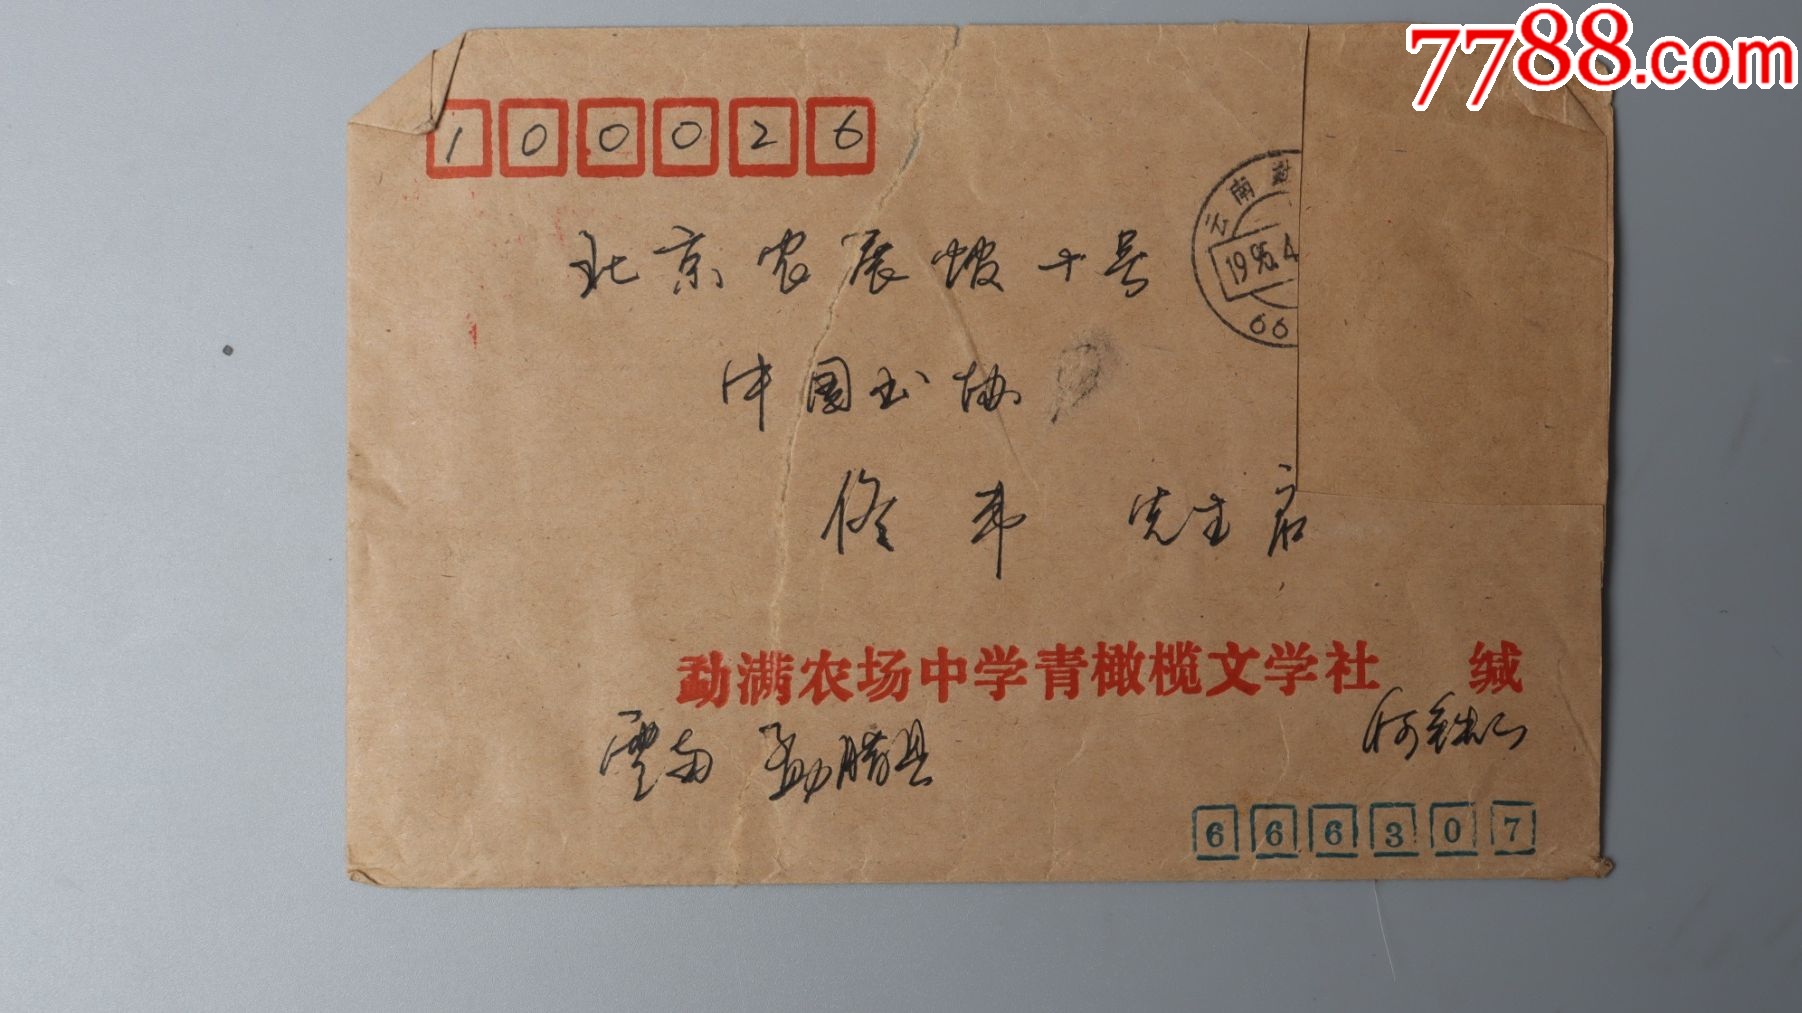 7788.com
100026
云南
1995.4
66
北京农展馆十号
中国书协
佟韦 先生 启
勐满农场中学青橄榄文学社 缄
雲南 勐腊县
666307